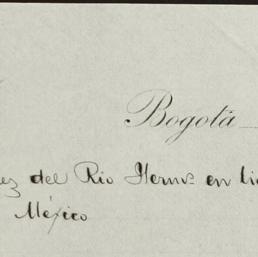 Bogotá
ez del Rio Herm.s en li
México